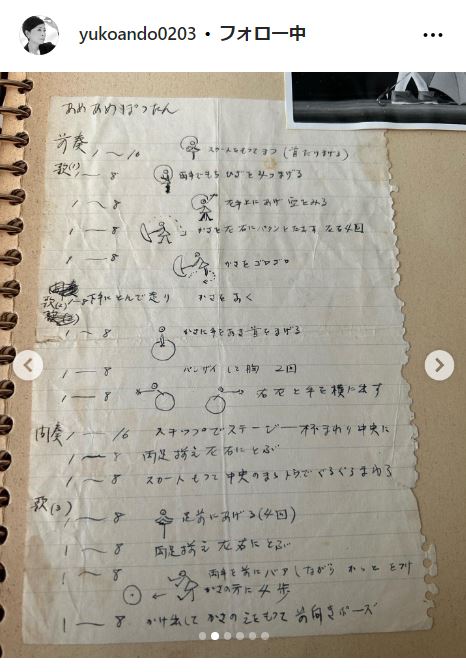 yukoando0203 • フォロー中
あめあめぽったん
前奏 1〜16 スカートをもってまつ (首だけまげる)
歌(1) 1〜8 両手でもち ひざを みつまげる
1〜8 左手上にあげ 空をみる
1〜8 かさを左右にバウンドさせます 左右4回
1〜8 かさをゴロゴロ
歌(2) 1〜8 下手にとんで走り かさをおく
1〜8 かさに手をおき首をまげる
1〜8 バンザイして胸 2回
1〜8 右左と手を横に出す
間奏 1〜16 スキップでステージ一杯まわり中央に
1〜8 両足揃え左右にとぶ
1〜8 スカートもって中央のまるトウでぐるぐるまわる
歌(3) 1〜8 足前にあげる(4回)
1〜8 両足揃え左右にとぶ
1〜8 両手を前にバアしながら
かさの方に4歩
1〜8 かけ出して かさのえをもって 前向きポーズ